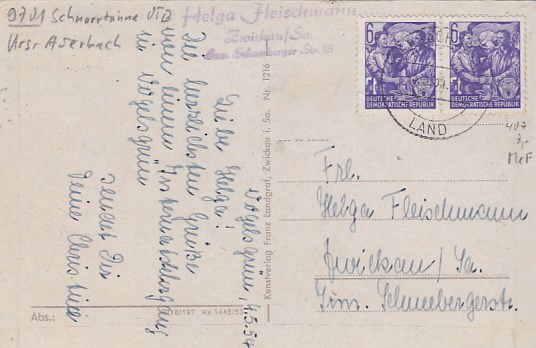 9701 Schnarrtanne VTB
Krsr Auerbach
Helga Fleischmann
Zwickau/Sa.
Schneeberger Str. 18
6
6
DEUTSCHE
DEMOKRATISCHE REPUBLIK
DEUTSCHE
DEMOKRATISCHE REPUBLIK
LAND
407
3,-
MeF
Vogelsgrün, 9.5.54
Liebe Helga!
Die herzlichsten Grüße
von einem
in Vogelsgrün
sendet Dir
Deine Christine
Kunstverlag Franz Landgraf, Zwickau i. Sa. Nr. 1216
Frl.
Helga Fleischmann
Zwickau/Sa.
Schneebergerstr.
Abs.: